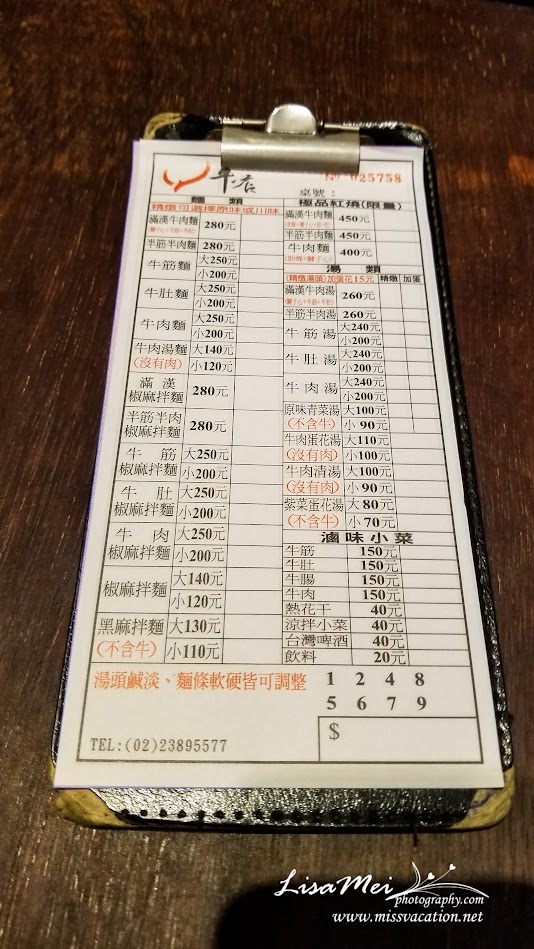 牛店
NO 025758
桌號：
麵 類
精燉可選擇原味或川味
滿漢牛肉麵 280元
(腱子心+牛筋+牛肚)
半筋半肉麵 280元
牛筋麵 大250元
小200元
牛肚麵 大250元
小200元
牛肉麵 大250元
小200元
牛肉湯麵 大140元
(沒有肉) 小120元
滿漢
椒麻拌麵 280元
半筋半肉
椒麻拌麵 280元
牛筋 大250元
椒麻拌麵 小200元
牛肚 大250元
椒麻拌麵 小200元
牛肉 大250元
椒麻拌麵 小200元
椒麻拌麵 大140元
小120元
黑麻拌麵 大130元
(不含牛) 小110元
極品紅燒(限量)
滿漢牛肉麵 450元
半筋半肉麵 450元
牛肉麵 400元
湯 類
(精燉湯頭)加蛋花15元 精燉 加蛋
滿漢牛肉湯 260元
(腱子心+牛筋+牛肚)
半筋半肉湯 260元
牛筋湯 大240元
小200元
牛肚湯 大240元
小200元
牛肉湯 大240元
小200元
原味青菜湯 大100元
(不含牛) 小 90元
牛肉蛋花湯 大110元
(沒有肉) 小100元
牛肉清湯 大100元
(沒有肉) 小 90元
紫菜蛋花湯 大 80元
(不含牛) 小 70元
滷味小菜
牛筋 150元
牛肚 150元
牛腸 150元
牛肉 150元
熱花干 40元
涼拌小菜 40元
台灣啤酒 40元
飲料 20元
湯頭鹹淡、麵條軟硬皆可調整
1 2 4 8
5 6 7 9
$
TEL:(02)23895577
LisaMei
photography.com
www.missvacation.net